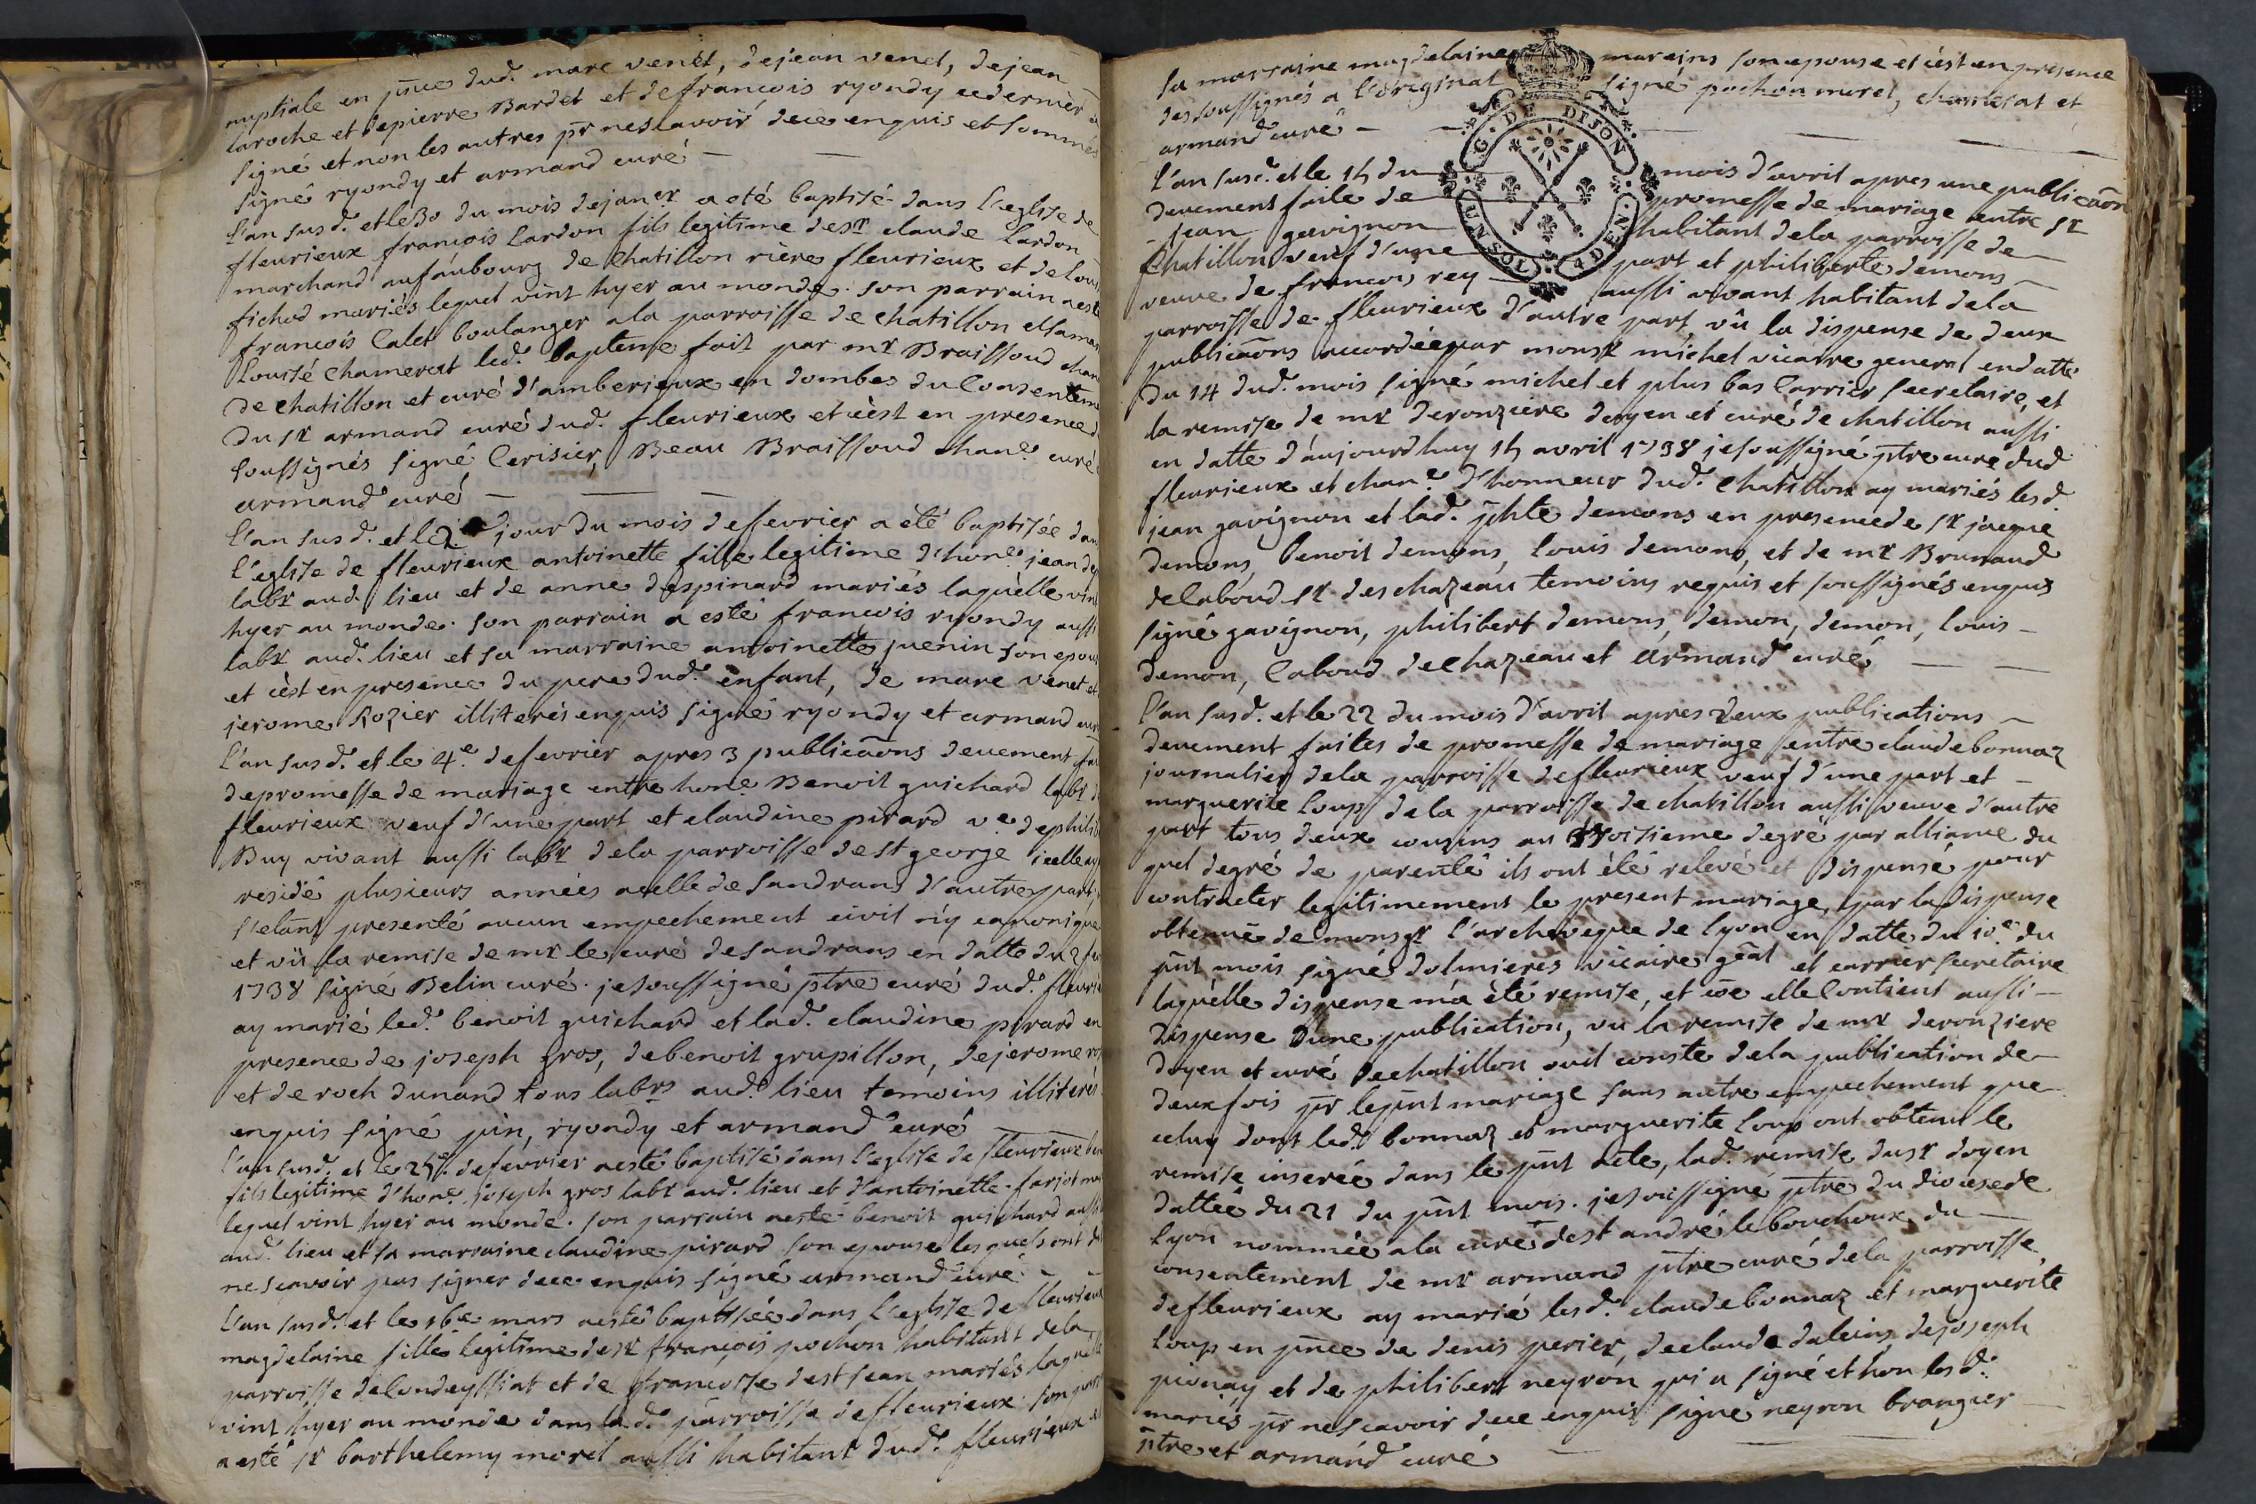 nuptiale en pnce dud. marc venet, de jean venet, de jean
laroche et de pierre Bardet et de francois ryondy ce dernièr a
signé et non les autres pr ne scavoir de ce enquis et sommés
signé ryondy et armand curé
L'an susd. et le 30 du mois de janer a eté baptisé dans l'eglise de
fleurieux françois Lardon fils legitime de sr claude Lardon
marchand au faubourg de Chatillon rière fleurieux et de
fichod mariés lequel vint hyer au monde. son parrain a esté
francois Calet boulanger a la parroisse de chatillon et sa
Louise Chamerat led. baptême fait par mr Braissoud
de chatillon et curé d'amberieux en dombes du Consenteme
du sr armand curé dud. fleurieux et c'est en presence d
soussignés signé Cerisier, Beau Braissoud chane. curé
armand curé
L'an susd. et le 2 jour du mois de fevrier a été baptisée dan
l'eglise de fleurieux antoinette fille legitime d'hone. jean
labr aud. lieu et de anne despinard mariés laquèlle vin
hyer au monde. son parrain a esté francois ryondy aussi
labr aud. lieu et sa marraine antoinette juenin son epou
et c'est en presence du pere dud. enfant, de marc venet et
jerome Rozier illiterés enquis signé ryondy et armand cur
L'an susd. et le 4e. de fevrièr apres 3 publicaons deuement
de promesse de mariage entre hone Benoit guichard labr d
fleurieux veuf d'une part et claudine pirard ve. de
Buy vivant aussi labr de la parroisse de st george icelle ay
residé plusieurs années a celle de sandrans d'autre part,
s'etant presenté aucun empechement civil n'y canonique
et vû la remise de mr le curé de sandrans en datte du 2
1738 signé Belin curé. je soussigné ptre curé dud. fleuri
ay marié led. benoit guichard et lad. claudine pirard en
presence de joseph gros, de benoit grupillon, de jerome
et de roch dunand tous labrs aud. lieu temoins illiterés
enquis signé juin, ryondy et armand curé
L'an susd. et le 25e. de fevrier a esté baptisé dans l'eglise de fleurieux
fils legitime d'hone. joseph gros labr aud. lieu et d'antoinette farjot
lequel vint hyer au monde. son parrain a esté benoit guichard aussi
aud. lieu et sa marraine claudine pirard son epouse lesquels ont
ne scavoir pas signer de ce enquis signé armand curé
L'an susd. et le 16e mars a esté baptisée dans l'eglise de fleurieux
magdelaine fille legitime de sr françois pochon habitant de la
parroisse de Condeyssiat et de francoise de st jean mariés laquelle
vint hyer au monde dans lad. parroisse de fleurieux. son parr
a esté sr barthelemy morel aussi habitant dud. fleurieux
sa marraine magdelaine mareins son epouse et c'est en presence
des soussignés a l'original signé pochon morel, chamerat et
armand curé
L'an susd. et le 15 du mois d'avril apres une publicaon
deuement faite de promesse de mariage entre sr
jean gavignon habitant de la parroisse de
Chatillon veuf d'une part et philiberte demons
veuve de francois rey aussi vivant habitant de la
parroisse de fleurieux d'autre part, vû la dispense de deux
publicaons accordée par monsr michel vicaire general en datte
du 14 dud. mois signé michel et plus bas Carrier secretaire, et
la remise de mr deronziere doyen et curé de chatillon aussi
en datte d'aujourdhuy 15 avril 1738 je soussigné ptre curé dud
fleurieux et chane. d'honneur dud. Chatillon ay mariés lesd.
jean gavignon et lad. phte demons en presence de sr jacque
demons, Benoit demons, Louis demons, et de mr Brunaud
de Laboud sr des chazeau temoins requis et soussignés enquis
signé gavignon, philibert demons, demon, demon, louis
demon, Laboud de Chazeau et armand curé
L'an susd. et le 22 du mois d'avril apres deux publications
deuement faites de promesse de mariage entre claude bonnaz
journalier de la parroisse de fleurieux veuf d'une part et
marguerite Loup de la parroisse de chatillon aussi veuve d'autre
part tous deux cousins au troisieme degré par alliance du
quel degré de parenté ils ont été relevé et dispensé pour
contracter legitimement le present mariage, par la dispense
obtenue de monsgr l'archevêque de lyon en datte du 10e. du
pnt mois signé dolmieres vicaire gnal et carrier secretaire
laquèlle dispense m'a été remise, et coe elle Contient aussi
dispense d'une publication, vu la remise de mr deronziere
doyen et curé de chatillon ou il conste de la publication de
deux fois pr le pnt mariage sans autre empechement que
celuy dont led. bonnaz et marguerite Loup ont obtenu le
remise inserée dans le pnt acte, lad. remise du sr doyen
dattée du 21 du pnt mois. je soussigné ptre du diocese de
Lyon nommée a la cure de st andré le bouchoux du
consentement de mr armand ptre curé de la parroisse
de fleurieux ay marié lesd. claude bonnaz et marguerite
Loup en pnce de denis perier, de claude daleins, de joseph
pionay et de philibert neyron qui a signé et non lesd.
mariés pr ne scavoir de ce enquis signé neyron brangier
ptre et armand curé
G. DE DIJON
UN SOL 4 DEN.